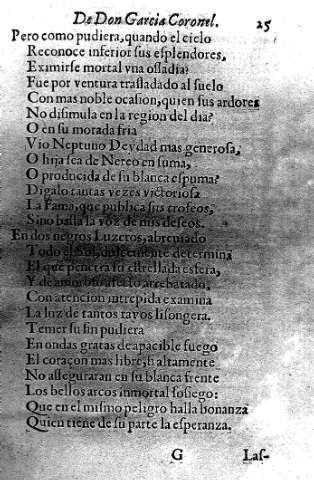 De Don Garcia Coronel. 25
Pero como pudiera, quando el cielo
Reconoce inferior sus esplendores,
Eximirse mortal vna ossadia?
Fue por ventura trasladado al suelo
Con mas noble ocasion, quien sus ardores
No disimula en la region del dia?
O en su morada fria
Vio Neptuno Deydad mas generosa,
O hija sea de Nereo en suma,
O producida de su blanca espuma?
Digalo tantas vezes victoriosa
La Fama, que publica sus trofeos,
Sino basta la voz de mis deseos.
En dos negros Luzeros, abreuiado
Todo el Sol, determina
El que penetra su estrellada esfera,
Y de arrebatado,
Con atencion intrepida examina
La luz de tantos rayos lisongera.
Temer su fin pudiera
En ondas gratas de apacible fuego
El coraçon mas libre, si altamente
No asseguraran en su blanca frente
Los bellos arcos inmortal sosiego:
Que en el mismo peligro halla bonanza
Quien tiene de su parte la esperanza.
G Las-